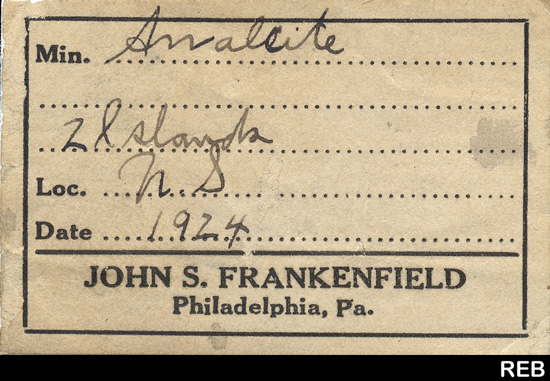 Min. Analcite
2 Islands
Loc. N. S
Date 1924
JOHN S. FRANKENFIELD
Philadelphia, Pa.
REB